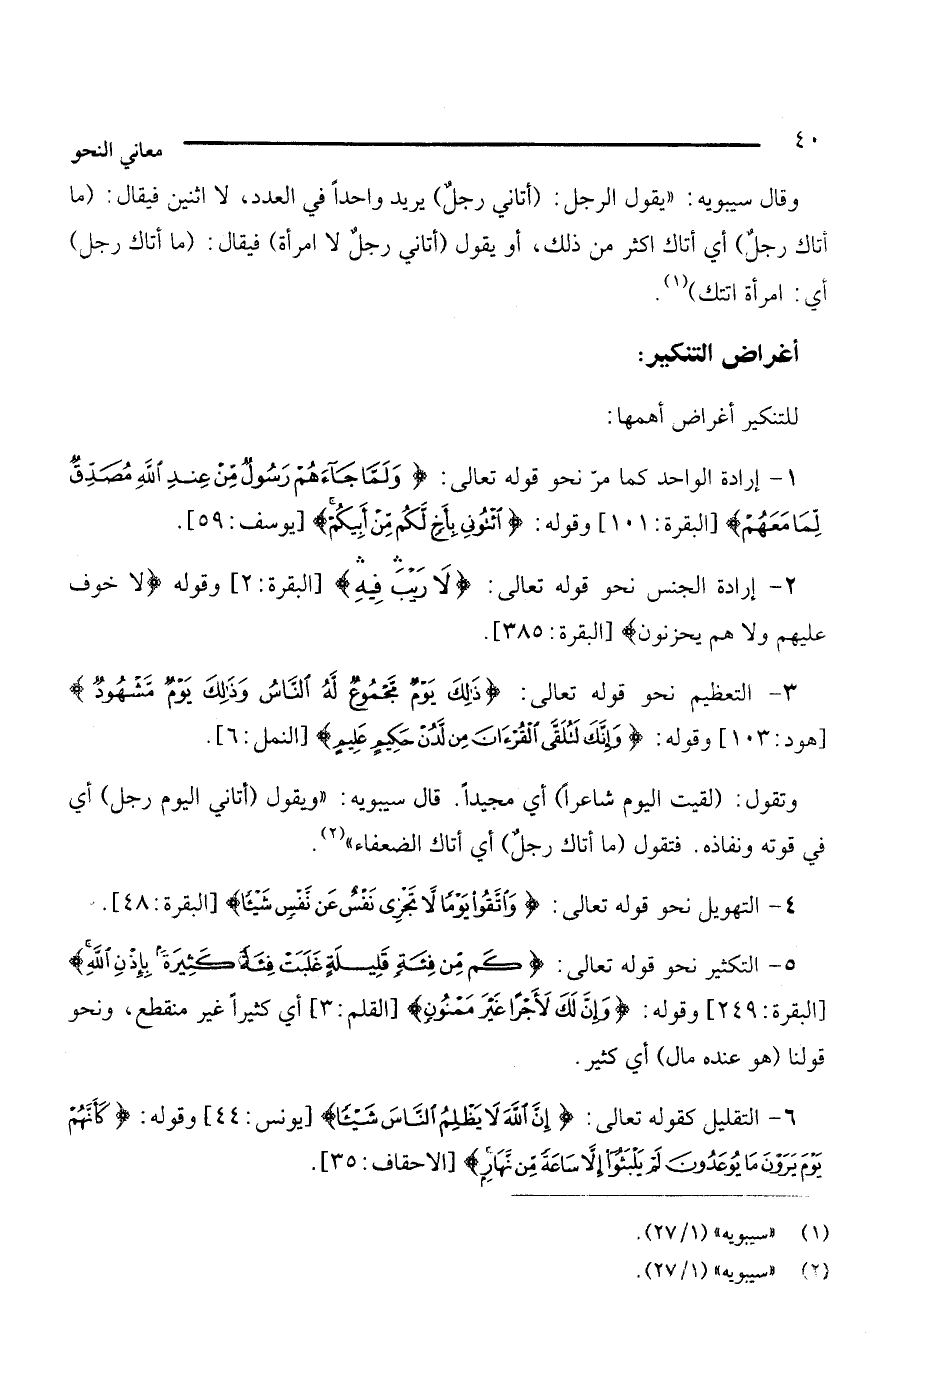 ٤٠ معاني النحو
وقال سيبويه: «يقول الرجل: (أتاني رجلٌ) يريد واحداً في العدد، لا اثنين فيقال: (ما
أتاك رجلٌ) أي أتاك اكثر من ذلك، أو يقول (أتاني رجلٌ لا امرأة) فيقال: (ما أتاك رجل)
أي: امرأة اتتك)(١).
أغراض التنكير:
للتنكير أغراض أهمها:
١- إرادة الواحد كما مرّ نحو قوله تعالى: ﴿ وَلَمَّا جَآءَهُمْ رَسُولٌ مِّنْ عِندِ ٱللَّهِ مُصَدِّقٌ
لِّمَا مَعَهُمْ﴾ [البقرة: ١٠١] وقوله: ﴿ ٱئْتُونِي بِأَخٍ لَّكُم مِّنْ أَبِيكُمْ﴾ [يوسف: ٥٩].
٢- إرادة الجنس نحو قوله تعالى: ﴿لَا رَيْبَ فِيهِ﴾ [البقرة: ٢] وقوله ﴿لا خوف
عليهم ولا هم يحزنون﴾ [البقرة: ٣٨٥].
٣- التعظيم نحو قوله تعالى: ﴿ذَٰلِكَ يَوْمٌ مَّجْمُوعٌ لَّهُ ٱلنَّاسُ وَذَٰلِكَ يَوْمٌ مَّشْهُودٌ ﴾
[هود: ١٠٣] وقوله: ﴿ وَإِنَّكَ لَتُلَقَّى ٱلْقُرْءَانَ مِن لَّدُنْ حَكِيمٍ عَلِيمٍ﴾ [النمل: ٦].
وتقول: (لقيت اليوم شاعراً) أي مجيداً. قال سيبويه: «ويقول (أتاني اليوم رجل) أي
في قوته ونفاذه. فتقول (ما أتاك رجلٌ) أي أتاك الضعفاء»(٢).
٤- التهويل نحو قوله تعالى: ﴿ وَٱتَّقُوا۟ يَوْمًا لَّا تَجْزِى نَفْسٌ عَن نَّفْسٍ شَيْـًٔا﴾ [البقرة: ٤٨].
٥- التكثير نحو قوله تعالى: ﴿ كَم مِّن فِئَةٍ قَلِيلَةٍ غَلَبَتْ فِئَةً كَثِيرَةً بِإِذْنِ ٱللَّهِ﴾
[البقرة: ٢٤٩] وقوله: ﴿وَإِنَّ لَكَ لَأَجْرًا غَيْرَ مَمْنُونٍ﴾ [القلم: ٣] أي كثيراً غير منقطع، ونحو
قولنا (هو عنده مال) أي كثير.
٦- التقليل كقوله تعالى: ﴿ إِنَّ ٱللَّهَ لَا يَظْلِمُ ٱلنَّاسَ شَيْـًٔا﴾ [يونس: ٤٤] وقوله: ﴿ كَأَنَّهُمْ
يَوْمَ يَرَوْنَ مَا يُوعَدُونَ لَمْ يَلْبَثُوٓا۟ إِلَّا سَاعَةً مِّن نَّهَارٍ﴾ [الاحقاف: ٣٥].
(١) «سيبويه» (٢٧/١).
(٢) «سيبويه» (٢٧/١).